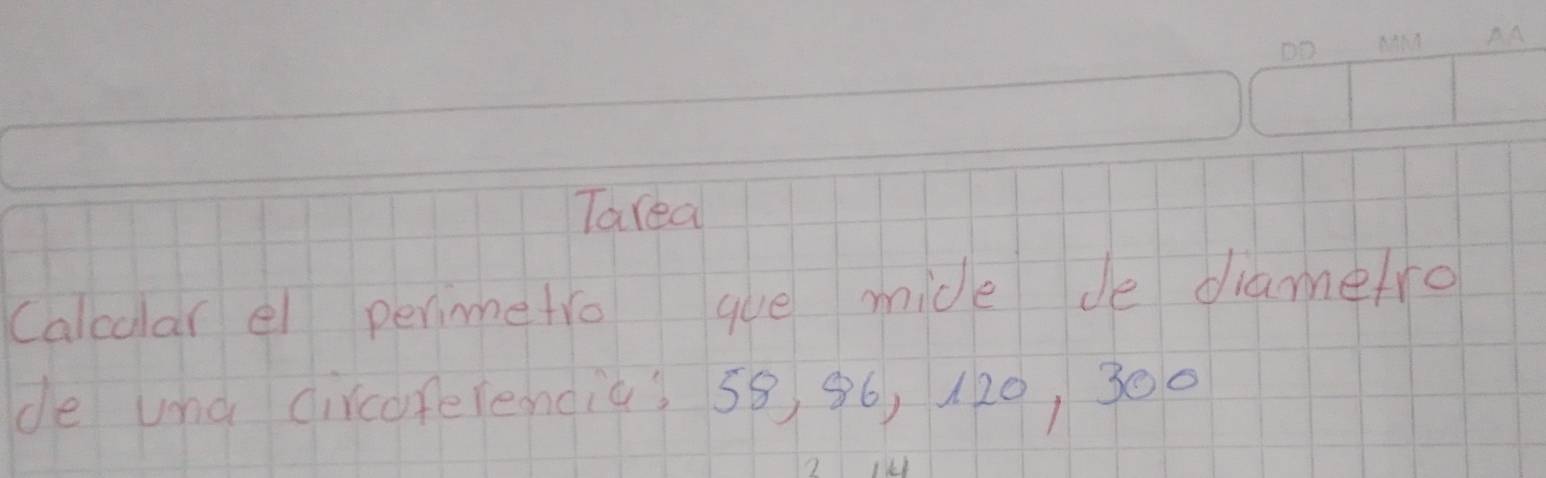 DD MM AA
Tarea
Calcular el perimetro que mide de diametro
de una circuferencia: 58, 86, 120, 300